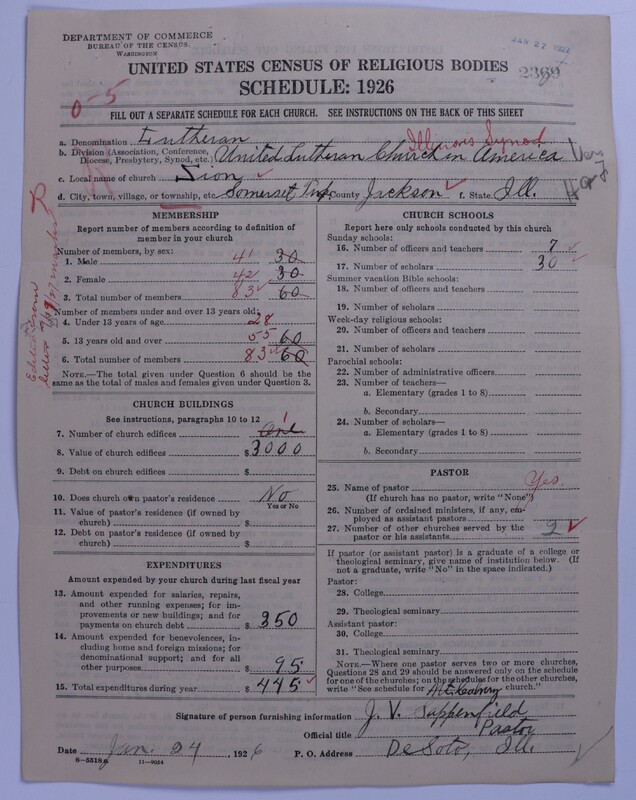 DEPARTMENT OF COMMERCE
BUREAU OF THE CENSUS
WASHINGTON
JAN 27 192
2369
UNITED STATES CENSUS OF RELIGIOUS BODIES
SCHEDULE: 1926
0-5
FILL OUT A SEPARATE SCHEDULE FOR EACH CHURCH. SEE INSTRUCTIONS ON THE BACK OF THIS SHEET
a. Denomination Lutheran Illinois Synod
b. Division (Association, Conference, Diocese, Presbytery, Synod, etc.) United Lutheran Church in America
c. Local name of church Zion
d. City, town, village, or township, etc. Somerset Twp. County Jackson f. State Ill.
MEMBERSHIP
Report number of members according to definition of
member in your church
Number of members, by sex:
1. Male 41 30
2. Female 42 30
3. Total number of members 83 60
Number of members under and over 13 years old:
4. Under 13 years of age 28
5. 13 years old and over 55 60
6. Total number of members 83 60
NOTE.—The total given under Question 6 should be
same as the total of males and females given under Question 3.
CHURCH BUILDINGS
See instructions, paragraphs 10 to 12
7. Number of church edifices One 1
8. Value of church edifices $ 3000
9. Debt on church edifices $
10. Does church own pastor's residence No
Yes or No
11. Value of pastor's residence (if owned by
church) $
12. Debt on pastor's residence (if owned by
church) $
EXPENDITURES
Amount expended by your church during last fiscal year
13. Amount expended for salaries, repairs,
and other running expenses; for im-
provements or new buildings; and for
payments on church debt $ 350
14. Amount expended for benevolences, in-
cluding home and foreign missions; for
denominational support; and for all
other purposes $ 95
15. Total expenditures during year $ 445
CHURCH SCHOOLS
Report here only schools conducted by this church
Sunday schools:
16. Number of officers and teachers 7
17. Number of scholars 30
Summer vacation Bible schools:
18. Number of officers and teachers
19. Number of scholars
Week-day religious schools:
20. Number of officers and teachers
21. Number of scholars
Parochial schools:
22. Number of administrative officers
23. Number of teachers—
a. Elementary (grades 1 to 8)
b. Secondary
24. Number of scholars—
a. Elementary (grades 1 to 8)
b. Secondary
PASTOR
25. Name of pastor Yes.
(If church has no pastor, write "None")
26. Number of ordained ministers, if any, em-
ployed as assistant pastors
27. Number of other churches served by the
pastor or his assistants 2
If pastor (or assistant pastor) is a graduate of a college or
theological seminary, give name of institution below. (If
not a graduate, write "No" in the space indicated.)
Pastor:
28. College
29. Theological seminary
Assistant pastor:
30. College
31. Theological seminary
NOTE.—Where one pastor serves two or more churches,
Questions 28 and 29 should be answered only on the schedule
for one of the churches; on the schedules for the other churches,
write "See schedule for Mt. Calvary church."
Signature of person furnishing information J. V. Sappenfield
Official title Pastor
Date Jan. 24, 1926 P. O. Address De Soto, Ill.
8-5518
11-9054